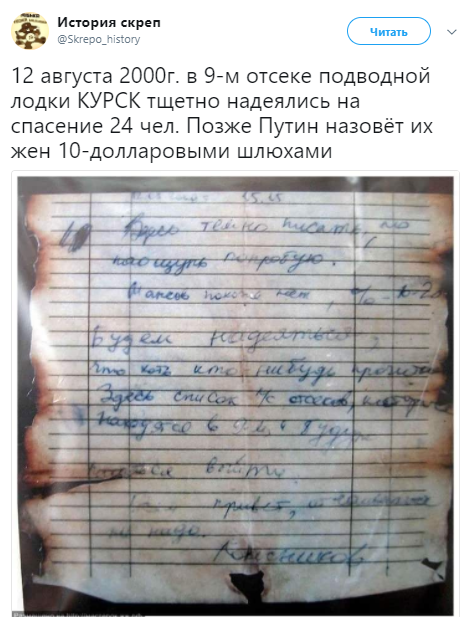 История скреп
@Skrepo_history
Читать
12 августа 2000г. в 9-м отсеке подводной
лодки КУРСК тщетно надеялись на
спасение 24 чел. Позже Путин назовёт их
жен 10-долларовыми шлюхами
15.15
Здесь темно писать, но
наощупь попробую.
Шансов похоже нет, %
Будем надеяться,
что хоть кто-нибудь прочитает
Здесь список л/с отсеков, которые
находятся в 9-м и будут
выйти.
привет, отчаиваться
не надо.
Колесников